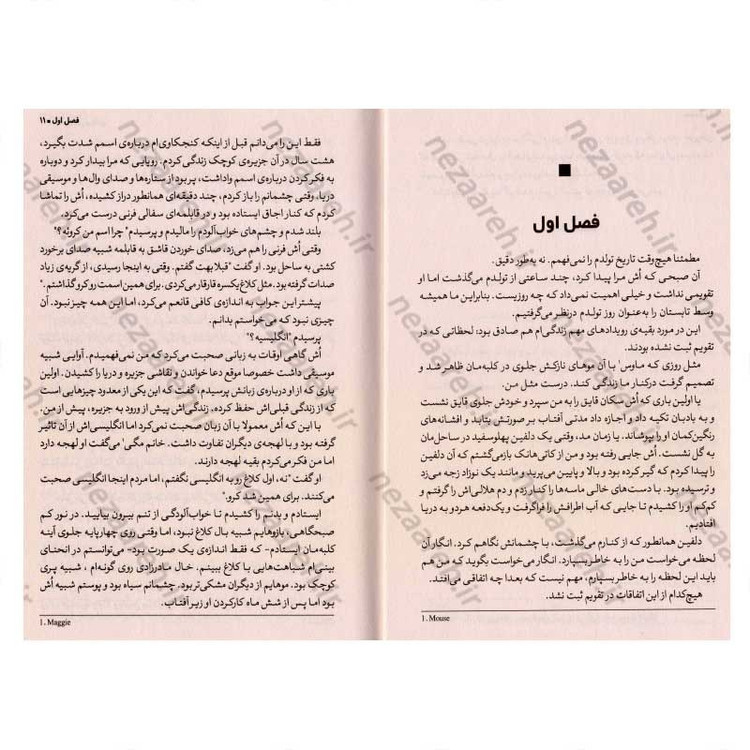 فصل اول
مطمئنا هیچ‌وقت تاریخ تولدم را نمی‌فهمم. نه به‌طور دقیق.
آن صبحی که اُش مرا پیدا کرد، چند ساعتی از تولدم می‌گذشت اما او
تقویمی نداشت و خیلی اهمیت نمی‌داد که چه روزیست. بنابراین ما همیشه
وسط تابستان را به‌عنوان روز تولدم درنظر می‌گرفتیم.
این در مورد بقیه‌ی رویدادهای مهم زندگی‌ام هم صادق بود؛ لحظاتی که در
تقویم ثبت نشده بودند.
مثل روزی که ماوس¹ با آن موهای نازکش جلوی در کلبه‌مان ظاهر شد و
تصمیم گرفت درکنار ما زندگی کند. درست مثل من.
یا اولین باری که اُش سکان قایق را به من سپرد و خودش جلوی قایق نشست
و به بادبان تکیه داد و اجازه داد مدتی آفتاب بر صورتش بتابد و افشانه‌های
رنگین‌کمان او را بپوشاند. یا زمان مد، وقتی یک دلفین پهلوسفید در ساحل‌مان
به گل نشست. اُش جایی رفته بود و من از کاتی‌هانک بازمی‌گشتم که آن دلفین
را پیدا کردم که گیر کرده بود و بالا و پایین می‌پرید و مانند یک نوزاد زجه می‌زد
و ترسیده بود. با دست‌های خالی ماسه‌ها را کنار زدم و دم هلالی‌اش را گرفتم و
کم‌کم او را کشیدم تا جایی که آب اطرافش را فراگرفت و یک‌دفعه هردو به دریا
افتادیم.
دلفین همانطور که از کنارم می‌گذشت، با چشمانش نگاهم کرد. انگار آن
لحظه می‌خواست من را به خاطر بسپارد. انگار می‌خواست بگوید که من هم
باید این لحظه را به خاطر بسپارم، مهم نیست که بعدا چه اتفاقی می‌افتد.
هیچ‌کدام از این اتفاقات در تقویم ثبت نشد.
1. Mouse
فصل اول ■ ۱۱
فقط این را می‌دانم قبل از اینکه کنجکاوی‌ام درباره‌ی اسمم شدت بگیرد،
هشت سال در آن جزیره‌ی کوچک زندگی کردم. رویایی که مرا بیدار کرد و دوباره
به فکر کردن درباره‌ی اسمم واداشت، پر بود از ستاره‌ها و صدای وال‌ها و موسیقی
دریا. وقتی چشمانم را باز کردم، چند دقیقه‌ای همانطور دراز کشیده، اُش را تماشا
کردم که کنار اجاق ایستاده بود و در قابلمه‌ای سفالی فرنی درست می‌کرد.
بلند شدم و چشم‌های خواب‌آلودم را مالیدم و پرسیدم "چرا اسم من کروئه؟"
وقتی اُش فرنی را هم می‌زد، صدای خوردن قاشق به قابلمه شبیه صدای برخورد
کشتی به ساحل بود. او گفت "قبلا بهت گفتم. وقتی به اینجا رسیدی، از گریه‌ی زیاد
صدات گرفته بود. مثل کلاغ یکسره قارقار می‌کردی. برای همین اسمت رو کرو گذاشتم."
پیشتر این جواب به اندازه‌ی کافی قانعم می‌کرد، اما این همه چیز نبود. آن
چیزی نبود که می‌خواستم بدانم.
پرسیدم "انگلیسیه؟"
اُش گاهی اوقات به زبانی صحبت می‌کرد که من نمی‌فهمیدم. آوایی شبیه
موسیقی داشت خصوصا موقع دعا خواندن و نقاشی جزیره و دریا را کشیدن. اولین
باری که از او درباره‌ی زبانش پرسیدم، گفت که این یکی از معدود چیزهایی است
که از زندگی قبلی‌اش حفظ کرده، زندگی‌اش پیش از ورود به جزیره، پیش از من.
با این که اُش معمولا با آن زبان صحبت نمی‌کرد اما انگلیسی‌اش از آن تاثیر
گرفته بود و با لهجه‌ی دیگران تفاوت داشت. خانم مگی¹ می‌گفت او لهجه دارد
اما من فکر می‌کردم بقیه لهجه دارند.
او گفت "نه، اول کلاغ رو به انگلیسی نگفتم، اما مردم اینجا انگلیسی صحبت
می‌کنند. برای همین شد کرو."
ایستادم و بدنم را کشیدم تا خواب‌آلودگی از تنم بیرون بیاید. در نور کم
صبحگاهی، بازوهایم شبیه بال کلاغ نبود، اما وقتی روی چهارپایه جلوی آینه
کلبه‌مان ایستادم -که فقط اندازه‌ی یک صورت بود- می‌توانستم در انحنای
بینی‌ام شباهت‌هایی با کلاغ ببینم. خال مادرزادی روی گونه‌ام ، شبیه پری
کوچک بود. موهایم از دیگران مشکی‌تر بود. چشمانم سیاه بود و پوستم شبیه اُش
بود اما پس از شش ماه کار کردن او زیر آفتاب.
1. Maggie
nezaareh.ir